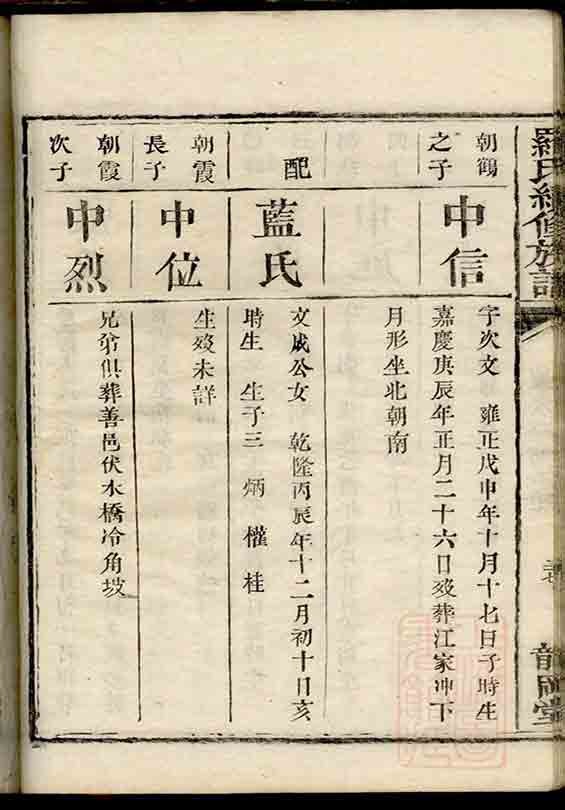 羅氏續修族譜
龍岡堂
朝鶴
之子
中信
字次文 雍正戊申年十月十七日子時生
嘉慶庚辰年正月二十六日歿葬江家冲下
月形坐北朝南
配
藍氏
文成公女 乾隆丙辰年十二月初十日亥
時生 生子三 炳 權 桂
朝霞
長子
中位
生歿未詳
朝霞
次子
中烈
兄弟俱葬善邑伏水橋冷角坡